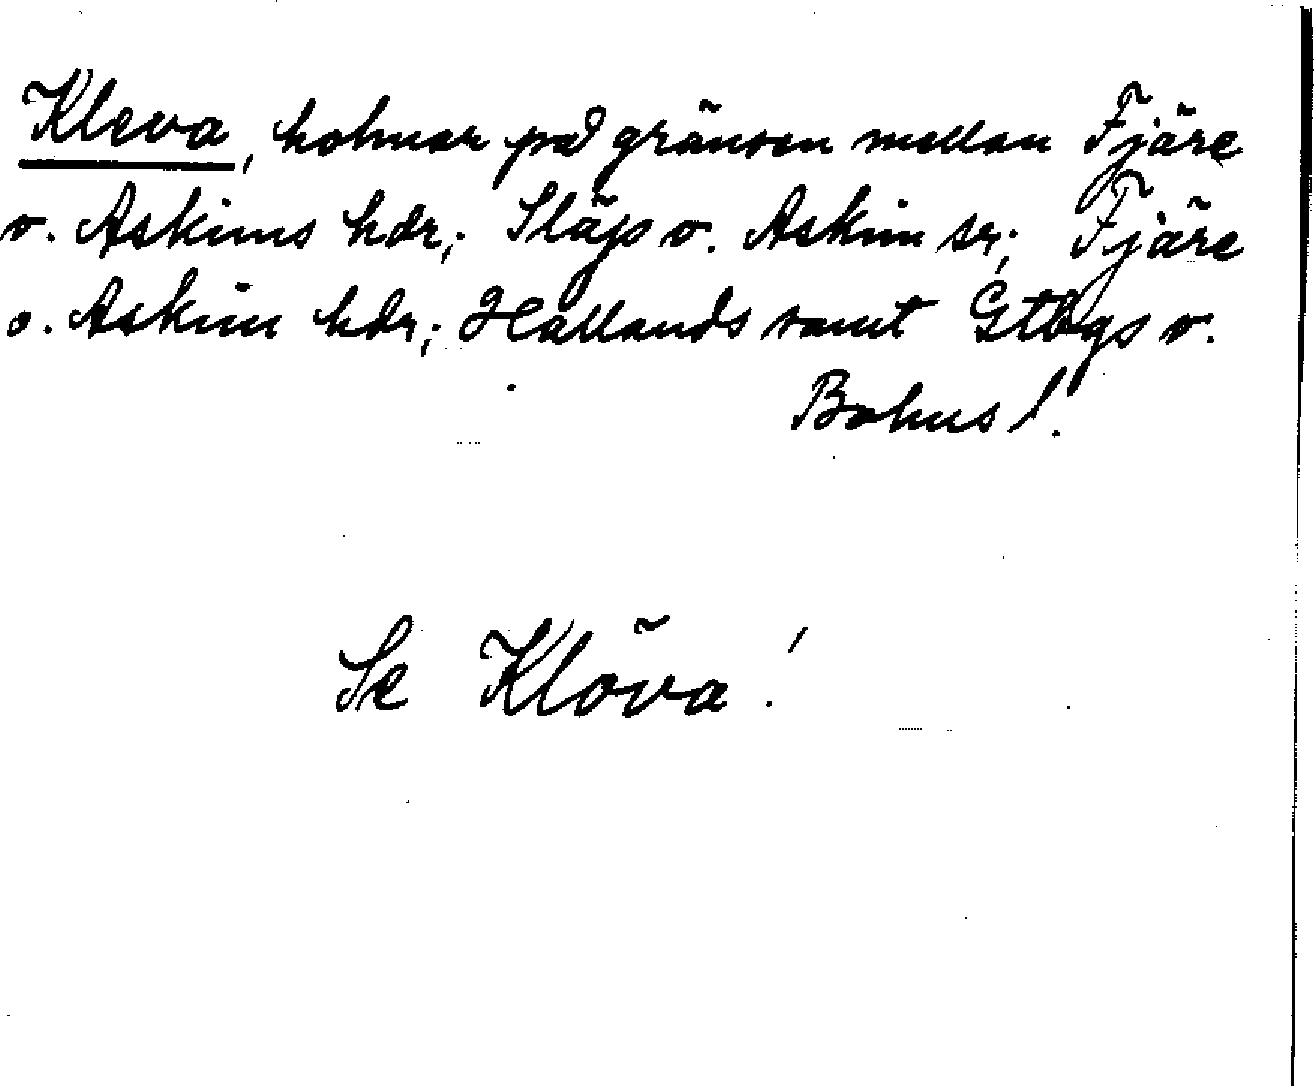 Kleva, holmar på gränsen mellan Fjäre
o. Askims hdr; Släp o. Askim sr; Fjäre
o. Askim hdr; Hallands samt Gtbgs o.
Bohus l.
Se Klöva!